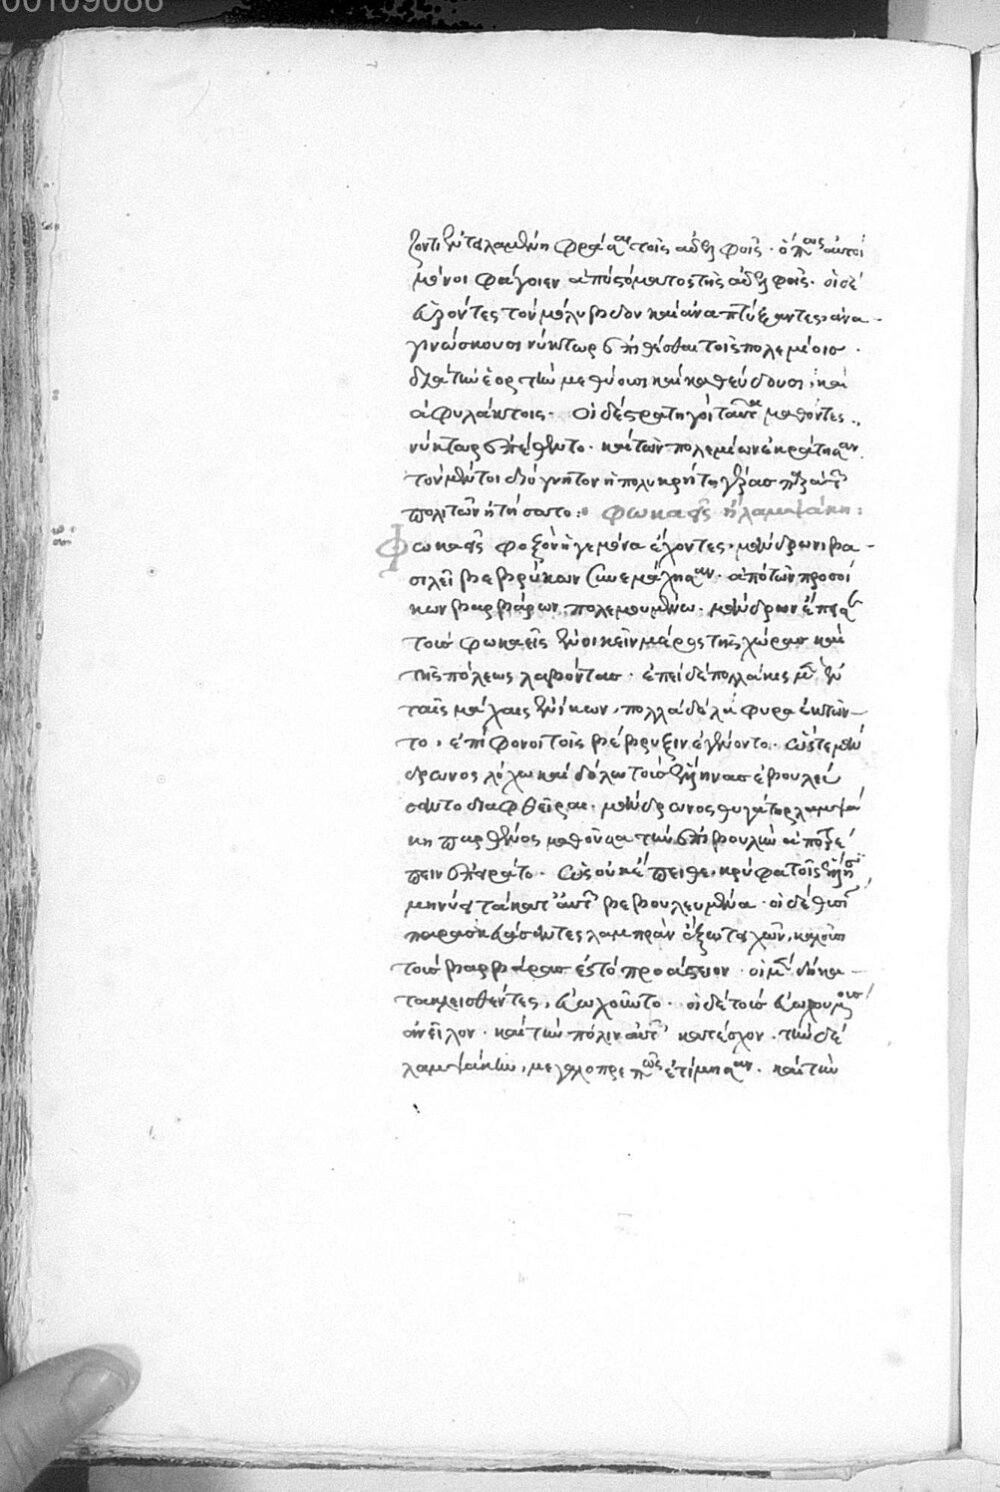 00109086
ζοντι ἐντυχλαμβάνη φράσαι τοῖς ἀδελφοῖς. ὅπως αὐτοὶ
μόνοι φάγοιεν ἀπὸ στόματος τῆς ἀδελφῆς. οἱ δὲ
ἑλόντες τὸν μόλυβδον καὶ ἀναπτύξαντες, ἀνα-
γινώσκουσι νύκτωρ ἐπιθέσθαι τοῖς πολεμίοις.
διὰ τὴν ἑορτὴν μεθύουσι καὶ καθεύδουσι, καὶ
ἀφυλάκτοις. Οἱ δὲ στρατηγοὶ ταῦτα μαθόντες,
νύκτωρ ἐπέθεντο. καὶ τῶν πολεμίων ἐκράτησαν
τὸν μέντοι διόγνητον ἡ πολυκρίτη
πολιτῶν ᾐτήσατο: φωκαεῖς ἡ λαμψάκη:
Φωκαεῖς φοξὸν ἡγεμόνα ἔχοντες, μάνδρωνι βα-
σιλεῖ βεβρύκων συνεμάχησαν. ἀπὸ τῶν προσοί
κων βαρβάρων πολεμουμένω. μάνδρων ἔπεισε
τοὺς φωκαεῖς ἐνοικεῖν μέρος τῆς χώρας καὶ
τῆς πόλεως λαβόντας. ἐπεὶ δὲ πολλάκις μὲν ἐν
ταῖς μάχαις ἐνίκων, πολλὰ δὲ λάφυρα ἐκτῶν-
το, ἐπίφονοι τοῖς βέβρυξιν ἐγένοντο. ὥστε μάν
δρωνος λόχω καὶ δόλω τοὺς ἕλληνας ἐβουλεύ
σαντο διαφθεῖραι. μάνδρωνος θυγάτηρ λαμψά
κη παρθένος μαθοῦσα τὴν ἐπιβουλὴν ἀποτρέ
πειν ἐπειρᾶτο. ὡς οὐκ ἔπειθε, κρύφα τοῖς ἕλλησι
μηνύει τὰ κατ' αὐτῶν βεβουλευμένα. οἱ δὲ θυσίαν
παρασκευάσαντες λαμπρὰν ἔξω τειχῶν, καλοῦσι
τοὺς βαρβάρους ἐς τὸ προάστειον. οἱ μὲν δὴ κα-
τακλεισθέντες, εὐωχοῦντο. οἱ δὲ τοὺς εὐωχουμένους
ἀνεῖλον. καὶ τὴν πόλιν αὐτῶν κατέσχον. τὴν δὲ
λαμψάκην, μεγαλοπρεπῶς ἐτίμησαν. καὶ τὴν